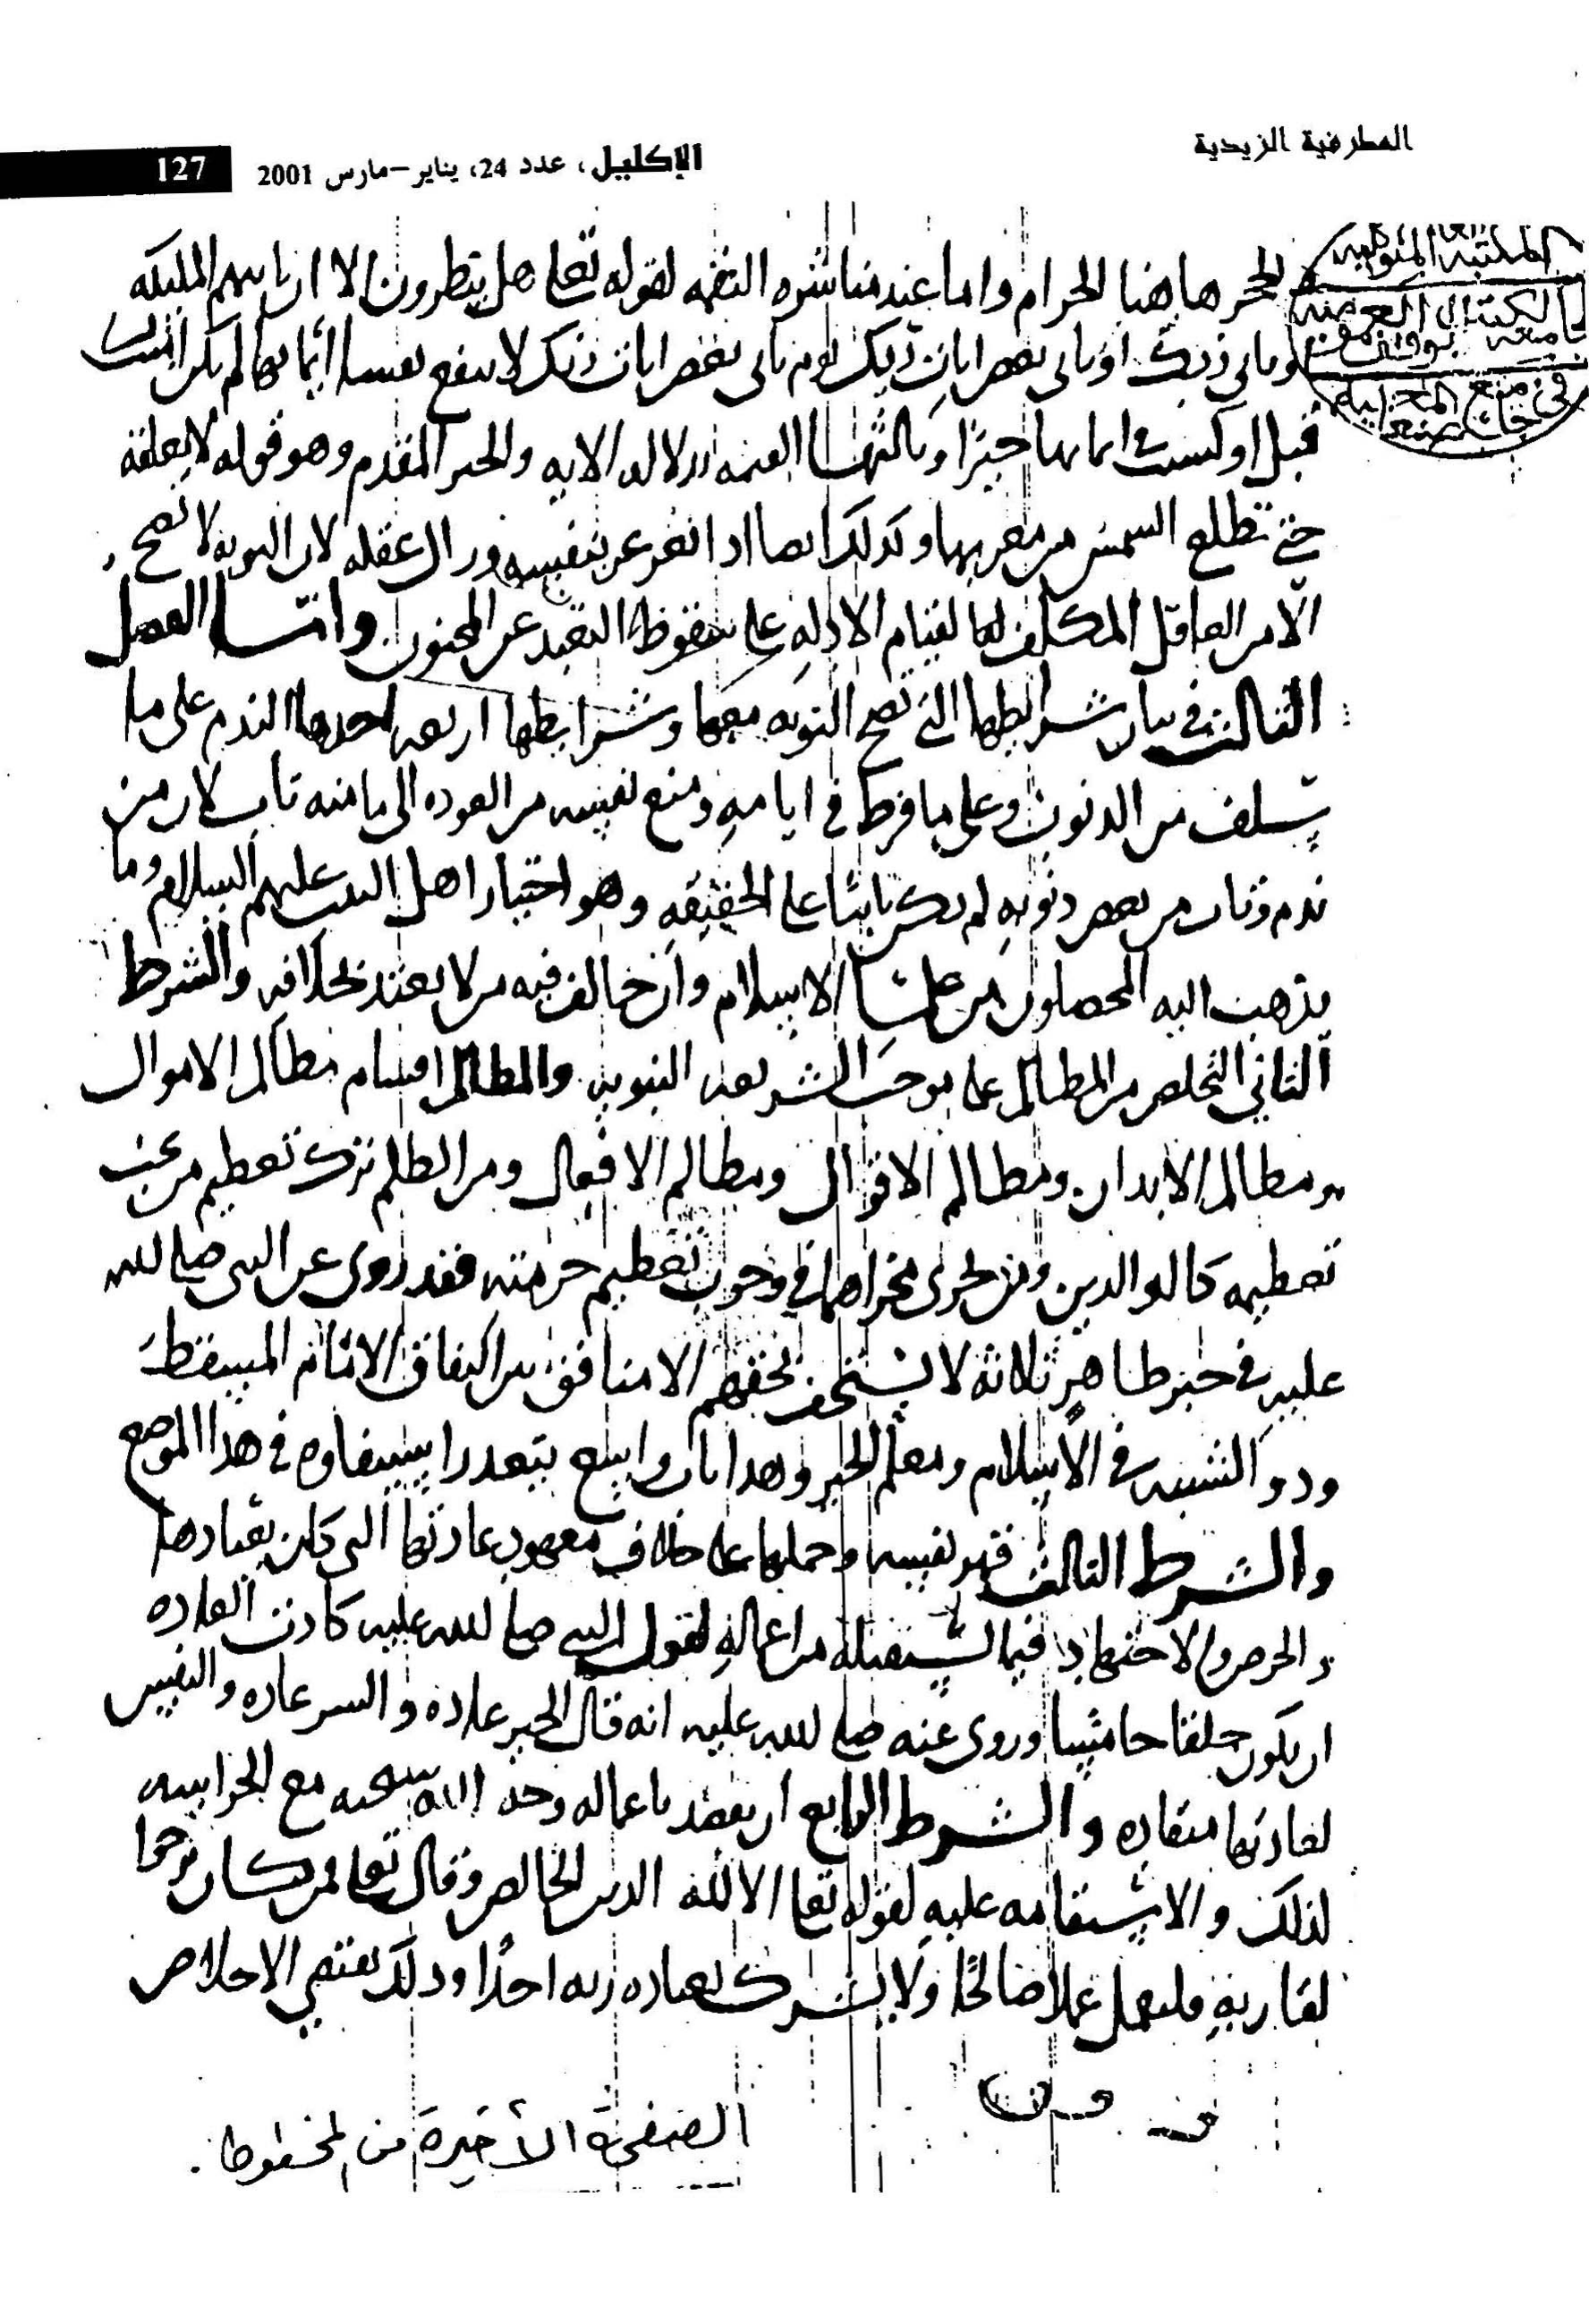 المطرفية الزيدية
الإكليل، عدد 24، يناير-مارس 2001 127
المكتبة المتوكلية
لحجر هاهنا الحرام واما عند مباشره النقمه لقوله تعلى هل ينظرون الا ان ياتيهم المليكه
او ياتي ربك او ياتي بعض ايات ربك يوم ياتي بعض ايات ربك لا ينفع نفسا ايمانها لم تكن امنت
قبل او كسبت في ايمانها خيرًا وثالثها القيمه لدلاله الايه والخبر المقدم وهو قوله لا يغلقه
حتى تطلع الشمس من مغربها وكذلك ايضا اذا تغرغر بنفسه وزال عقله لان التوبه لا تصح
الا من العاقل المكلف لها لقيام الادله على سقوط التعبد عن المجنون وامّا الفصل
الثالث في بيان شرايطها التي تصح التوبه معها وشرايطها اربعه احدها الندم على ما
سلف من الذنوب وعلى ما فرط في ايامهِ ومنع نفسه من العوده الى ما منه تاب لان من
ندم وتاب من بعض ذنوبهِ لم يكن تايبًا على الحقيقهِ وهو اختيار اهل البيت عليهم السلام وما
يذهب اليه المحصلون من علمآ الاسلام وان خالف فيه من لا يعتد بخلافه والشرط
الثاني التخلص من المظالم على موجب الشريعه النبويه والمظالم اقسام مظالم الاموال
ومظالم الابدان ومظالم الاقوال ومظالم الافعال ومن الظلم ترك تعظيم من يجب
تعظيمه كالوالدين ومن يجري مجراهما في وجوب تعظيم حرمته فقد روي عن النبي صلى الله
عليه في خبر ظاهرٍ ثلاثة لا يستخف بحقهم الا منافق بين النفاق الامام المقسط
وذو الشيبه في الاسلام ومعلم الخير وهذا باب واسع يتعذر استيفاوه في هذا الموضع
والشرط الثالث قهر نفسه وحملها على خلاف معهود عادتها التي كان يعتادها
والحرص والاجتهاد فيما يستقبله من اعمالهِ لقول النبي صلى الله عليه كادت العاده
ان تكون خلقا خامسا وروي عنه صلى الله عليه انه قال الخير عاده والشر عاده والنفس
لعادتها منقاده والشرط الرابع ان يقصد باعماله وجه الله سبحنه مع الحراسه
لذلك والاستقامه عليهِ لقوله تعلى الا لله الدين الخالص وقال تعلى فمن كان يرجوا
لقا ربهِ فليعمل عملا صالحًا ولا يشرك بعباده ربه احدًا وذلك يقتضي الاخلاص
الصفحة الأخيرة من المخطوط.